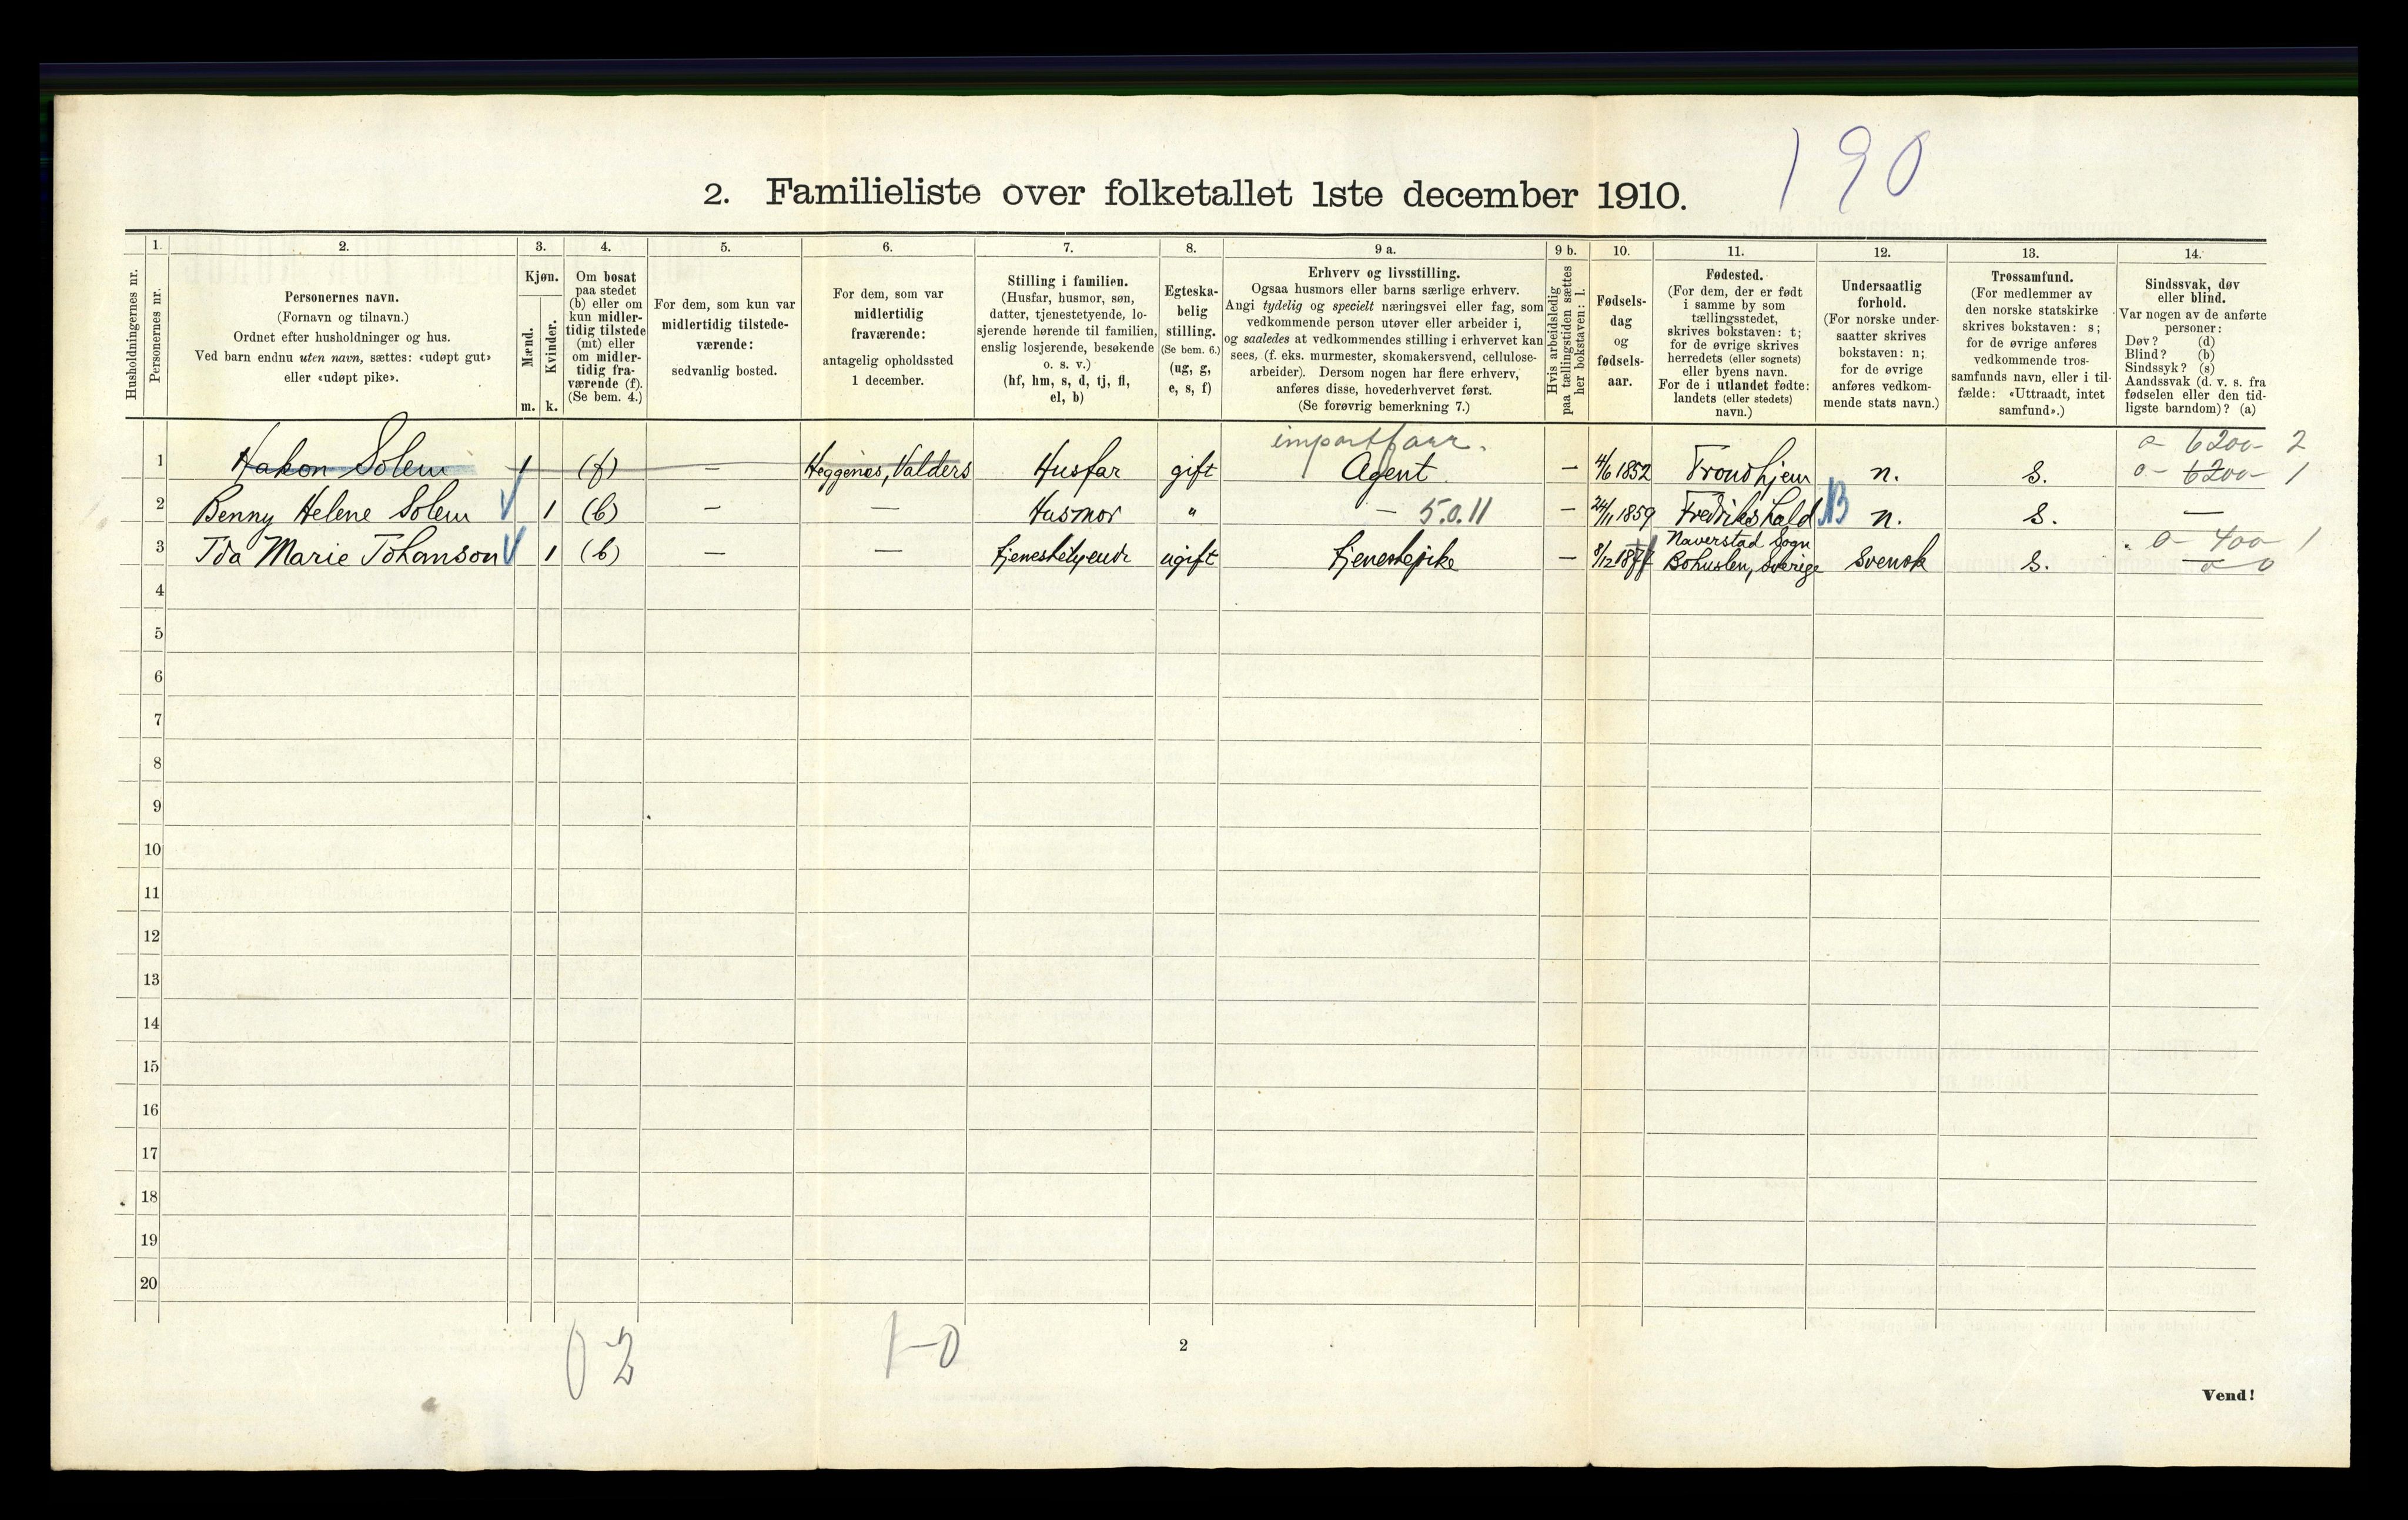 190
2. Familieliste over folketallet 1ste december 1910.
1. 2. 3. 4. 5. 6. 7. 8. 9 a. 9 b. 10. 11. 12. 13. 14.
Husholdningernes nr.
Personernes nr.
Personernes navn.
(Fornavn og tilnavn.)
Ordnet efter husholdninger og hus.
Ved barn endnu uten navn, sættes: «udøpt gut»
eller «udøpt pike».
Kjøn.
Mænd.
Kvinder.
m. k.
Om bosat
paa stedet
(b) eller om
kun midler-
tidig tilstede
(mt) eller
om midler-
tidig fra-
værende (f).
(Se bem. 4.)
For dem, som kun var
midlertidig tilstede-
værende:
sedvanlig bosted.
For dem, som var
midlertidig
fraværende:
antagelig opholdssted
1 december.
Stilling i familien.
(Husfar, husmor, søn,
datter, tjenestetyende, lo-
sjerende hørende til familien,
enslig losjerende, besøkende
o. s. v.)
(hf, hm, s, d, tj, fl,
el, b)
Egteska-
belig
stilling.
(Se bem. 6.)
(ug, g,
e, s, f)
Erhverv og livsstilling.
Ogsaa husmors eller barns særlige erhverv.
Angi tydelig og specielt næringsvei eller fag, som
vedkommende person utøver eller arbeider i,
og saaledes at vedkommendes stilling i erhvervet kan
sees, (f. eks. murmester, skomakersvend, cellulose-
arbeider). Dersom nogen har flere erhverv,
anføres disse, hovederhvervet først.
(Se forøvrig bemerkning 7.)
Hvis arbeidsledig
paa tællingstiden sættes
her bokstaven: l.
Fødsels-
dag
og
fødsels-
aar.
Fødested.
(For dem, der er født
i samme by som
tællingsstedet,
skrives bokstaven: t;
for de øvrige skrives
herredets (eller sognets)
eller byens navn.
For de i utlandet fødte:
landets (eller stedets)
navn.)
Undersaatlig
forhold.
(For norske under-
saatter skrives
bokstaven: n;
for de øvrige
anføres vedkom-
mende stats navn.)
Trossamfund.
(For medlemmer av
den norske statskirke
skrives bokstaven: s;
for de øvrige anføres
vedkommende tros-
samfunds navn, eller i til-
fælde: «Uttraadt, intet
samfund».)
Sindssvak, døv
eller blind.
Var nogen av de anførte
personer:
Døv? (d)
Blind? (b)
Sindssyk? (s)
Aandssvak (d. v. s. fra
fødselen eller den tid-
ligste barndom)? (a)
0 - 6200 - 2
1 Hakon Solem 1 (f) — Heggenes, Valders Husfar gift Agent — 4/6 1852 Trondhjem n. s. 0 - 6200 - 1
2 Benny Helene Solem 1 (b) — — Husmor " — 5.0.11 — 24/11 1859 Fredrikshald B n. s. —
Naverstad Sogn 0 - 400 - 1
3 Ida Marie Johanson 1 (b) — — tjenestetyende ugift tjenestepike — 8/12 1877 Bohuslen, Sverige Svensk s. —
4
5
6
7
8
9
10
11
12
13
14
15
16
17
18
19
20
0 2 1-0
2
Vend!